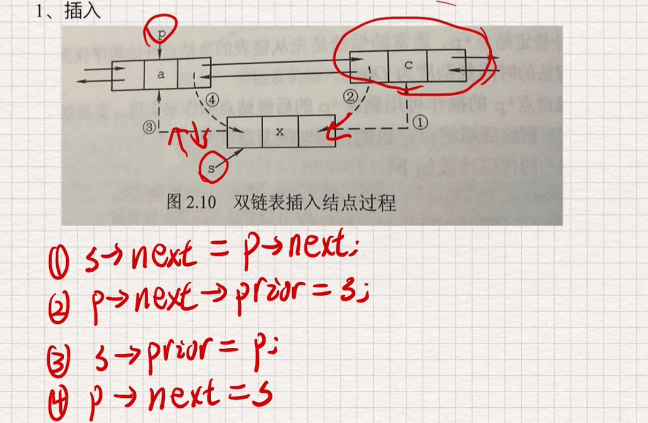 1、插入
p
a
c
④
②
③
x
①
s
图 2.10 双链表插入结点过程
① s→next = p→next;
② p→next→prior = s;
③ s→prior = p;
④ p→next = s